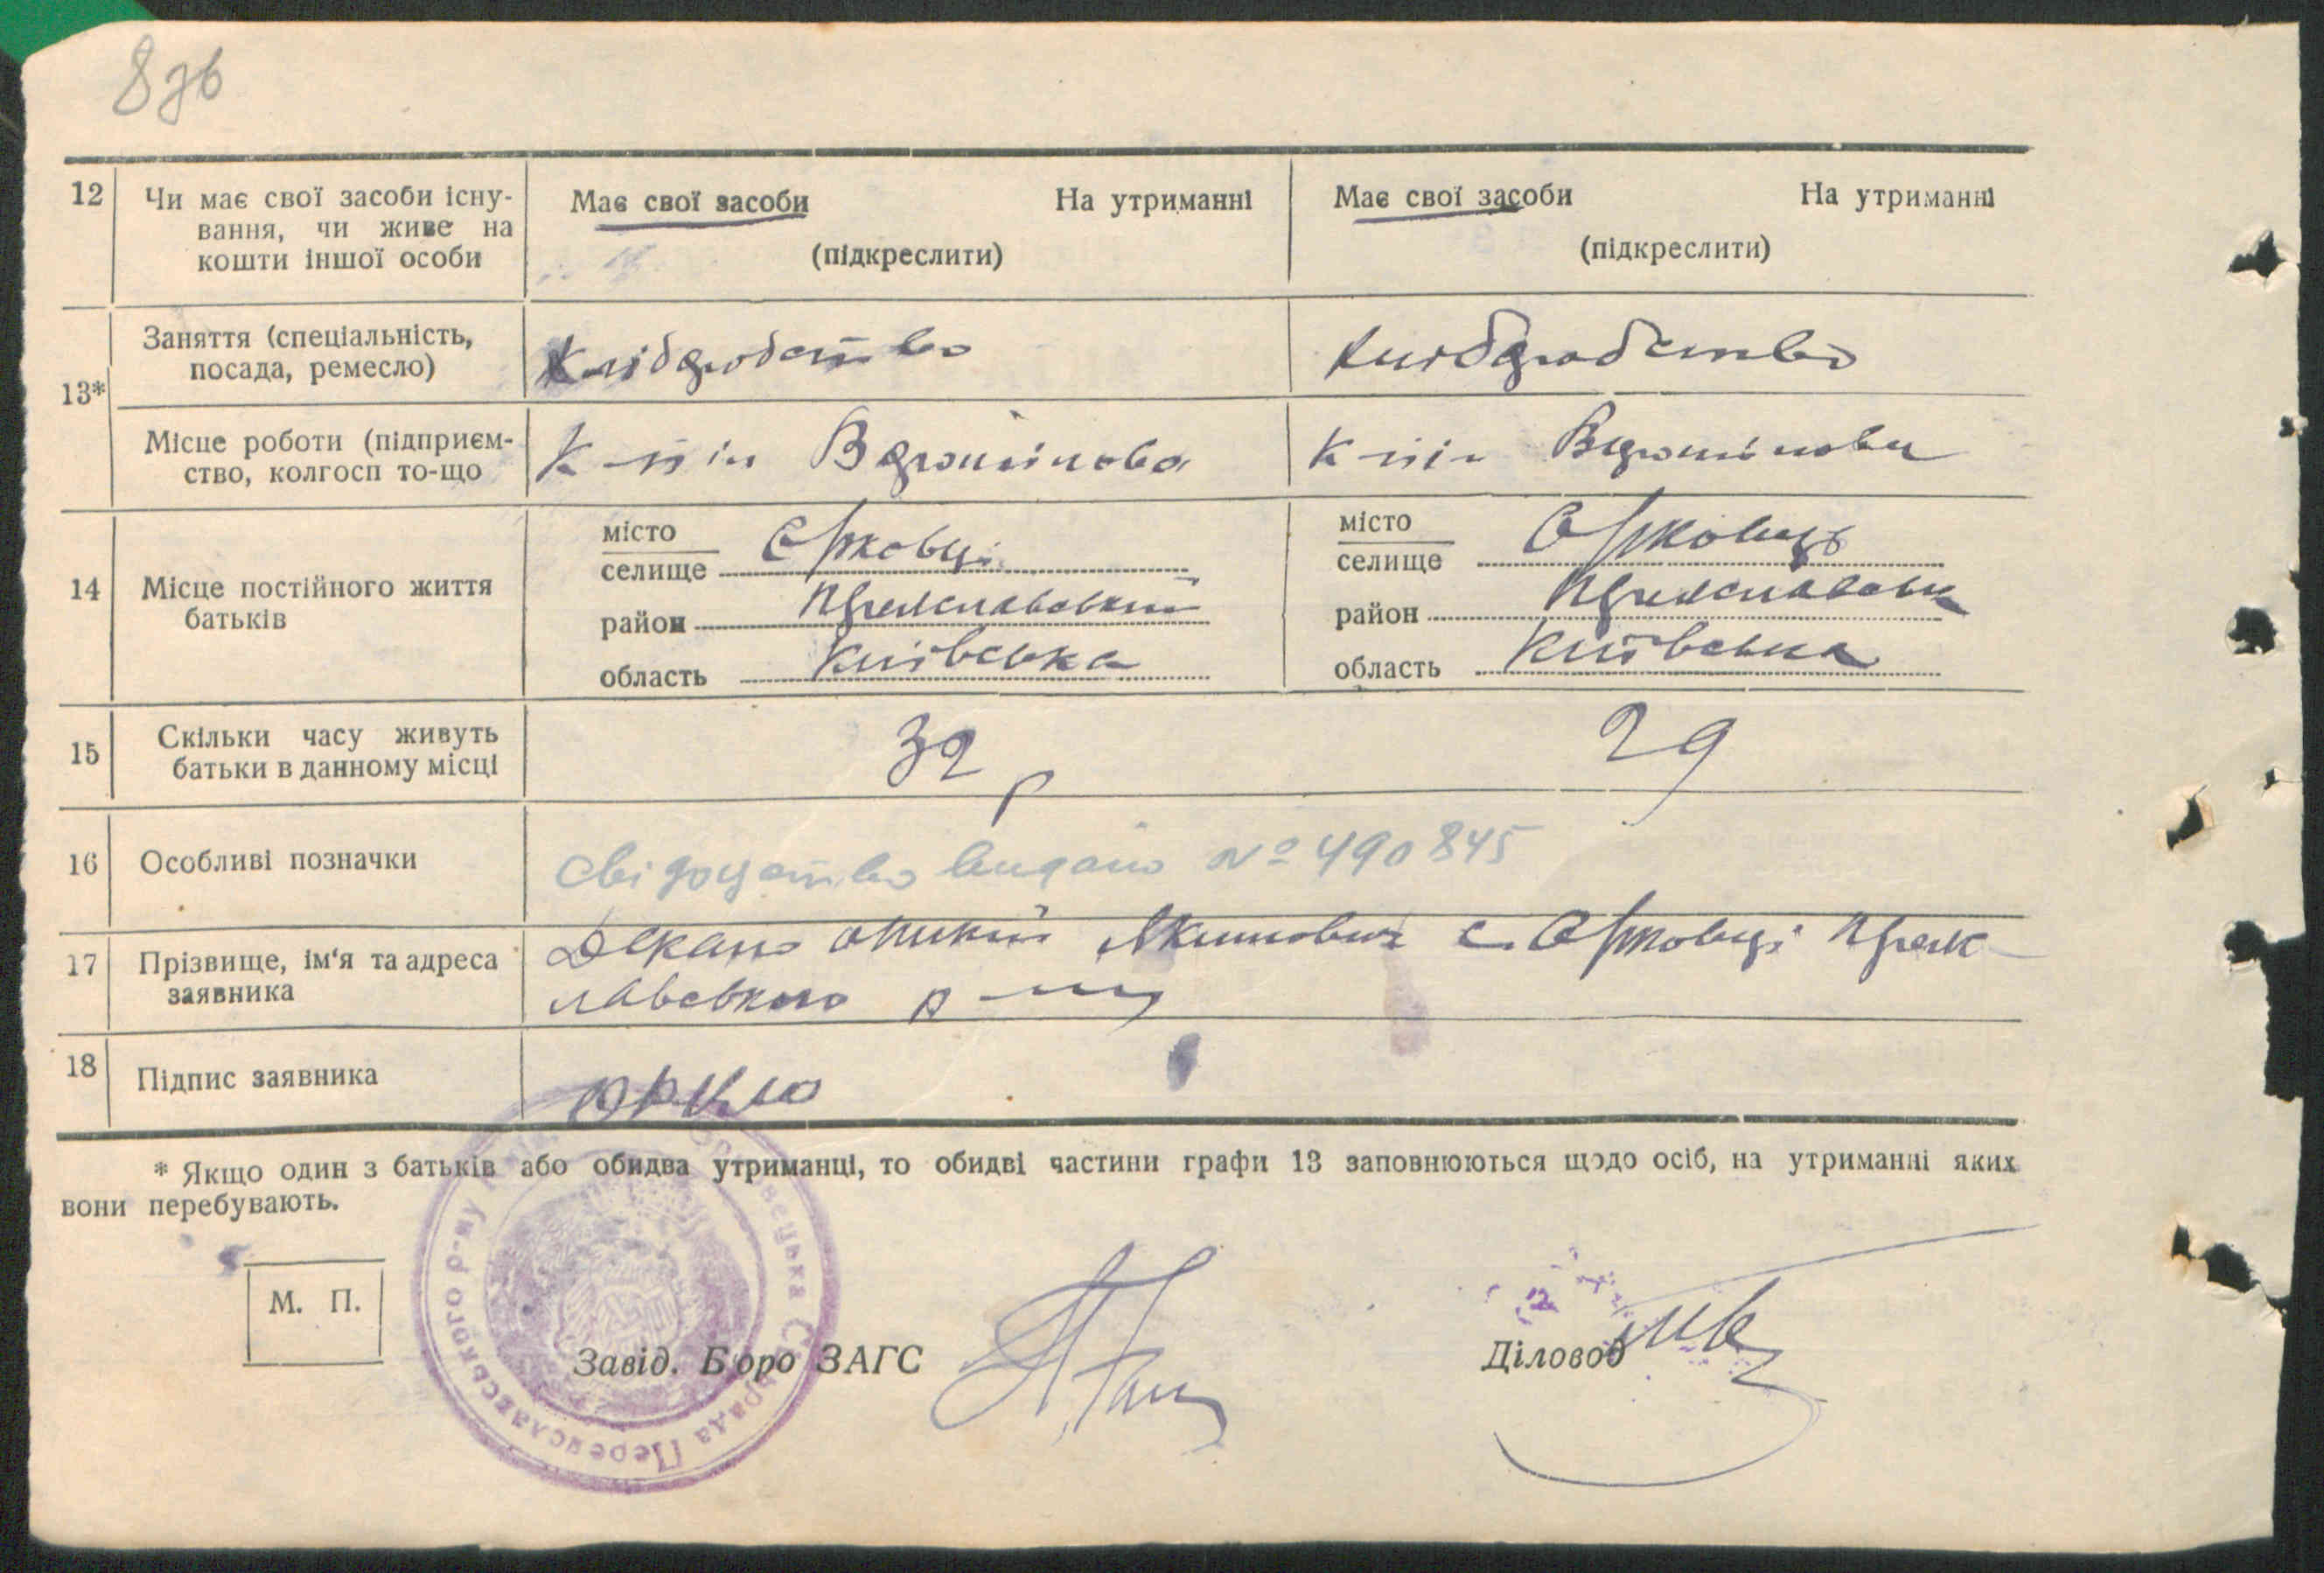 8зв
12 Чи має свої засоби існу-
вання, чи живе на
кошти іншої особи
Має свої засоби На утриманні
(підкреслити)
Має свої засоби На утриманні
(підкреслити)
13*
Заняття (спеціальність,
посада, ремесло)
Хлібдробство
Хлібдробство
Місце роботи (підприєм-
ство, колгосп то-що
К-пін Ворошилова
К-пін Ворошилова
14 Місце постійного життя
батьків
місто
селище Єрковці
район Переяславський
область Київська
місто
селище Єрковці
район Переяславськ
область Київська
15 Скільки часу живуть
батьки в данному місці
32 р
29
16 Особливі позначки
свідоцтво видано № 490845
17 Прізвище, ім'я та адреса
заявника
Якимович с. Єрковці Переяс-
лавського р-ну
18 Підпис заявника
* Якщо один з батьків або обидва утриманці, то обидві частини графи 13 заповнюються щодо осіб, на утриманні яких
вони перебувають.
М. П.
Завід. Бюро ЗАГС
Діловод
вецька Сільрада Переяславського р-ну